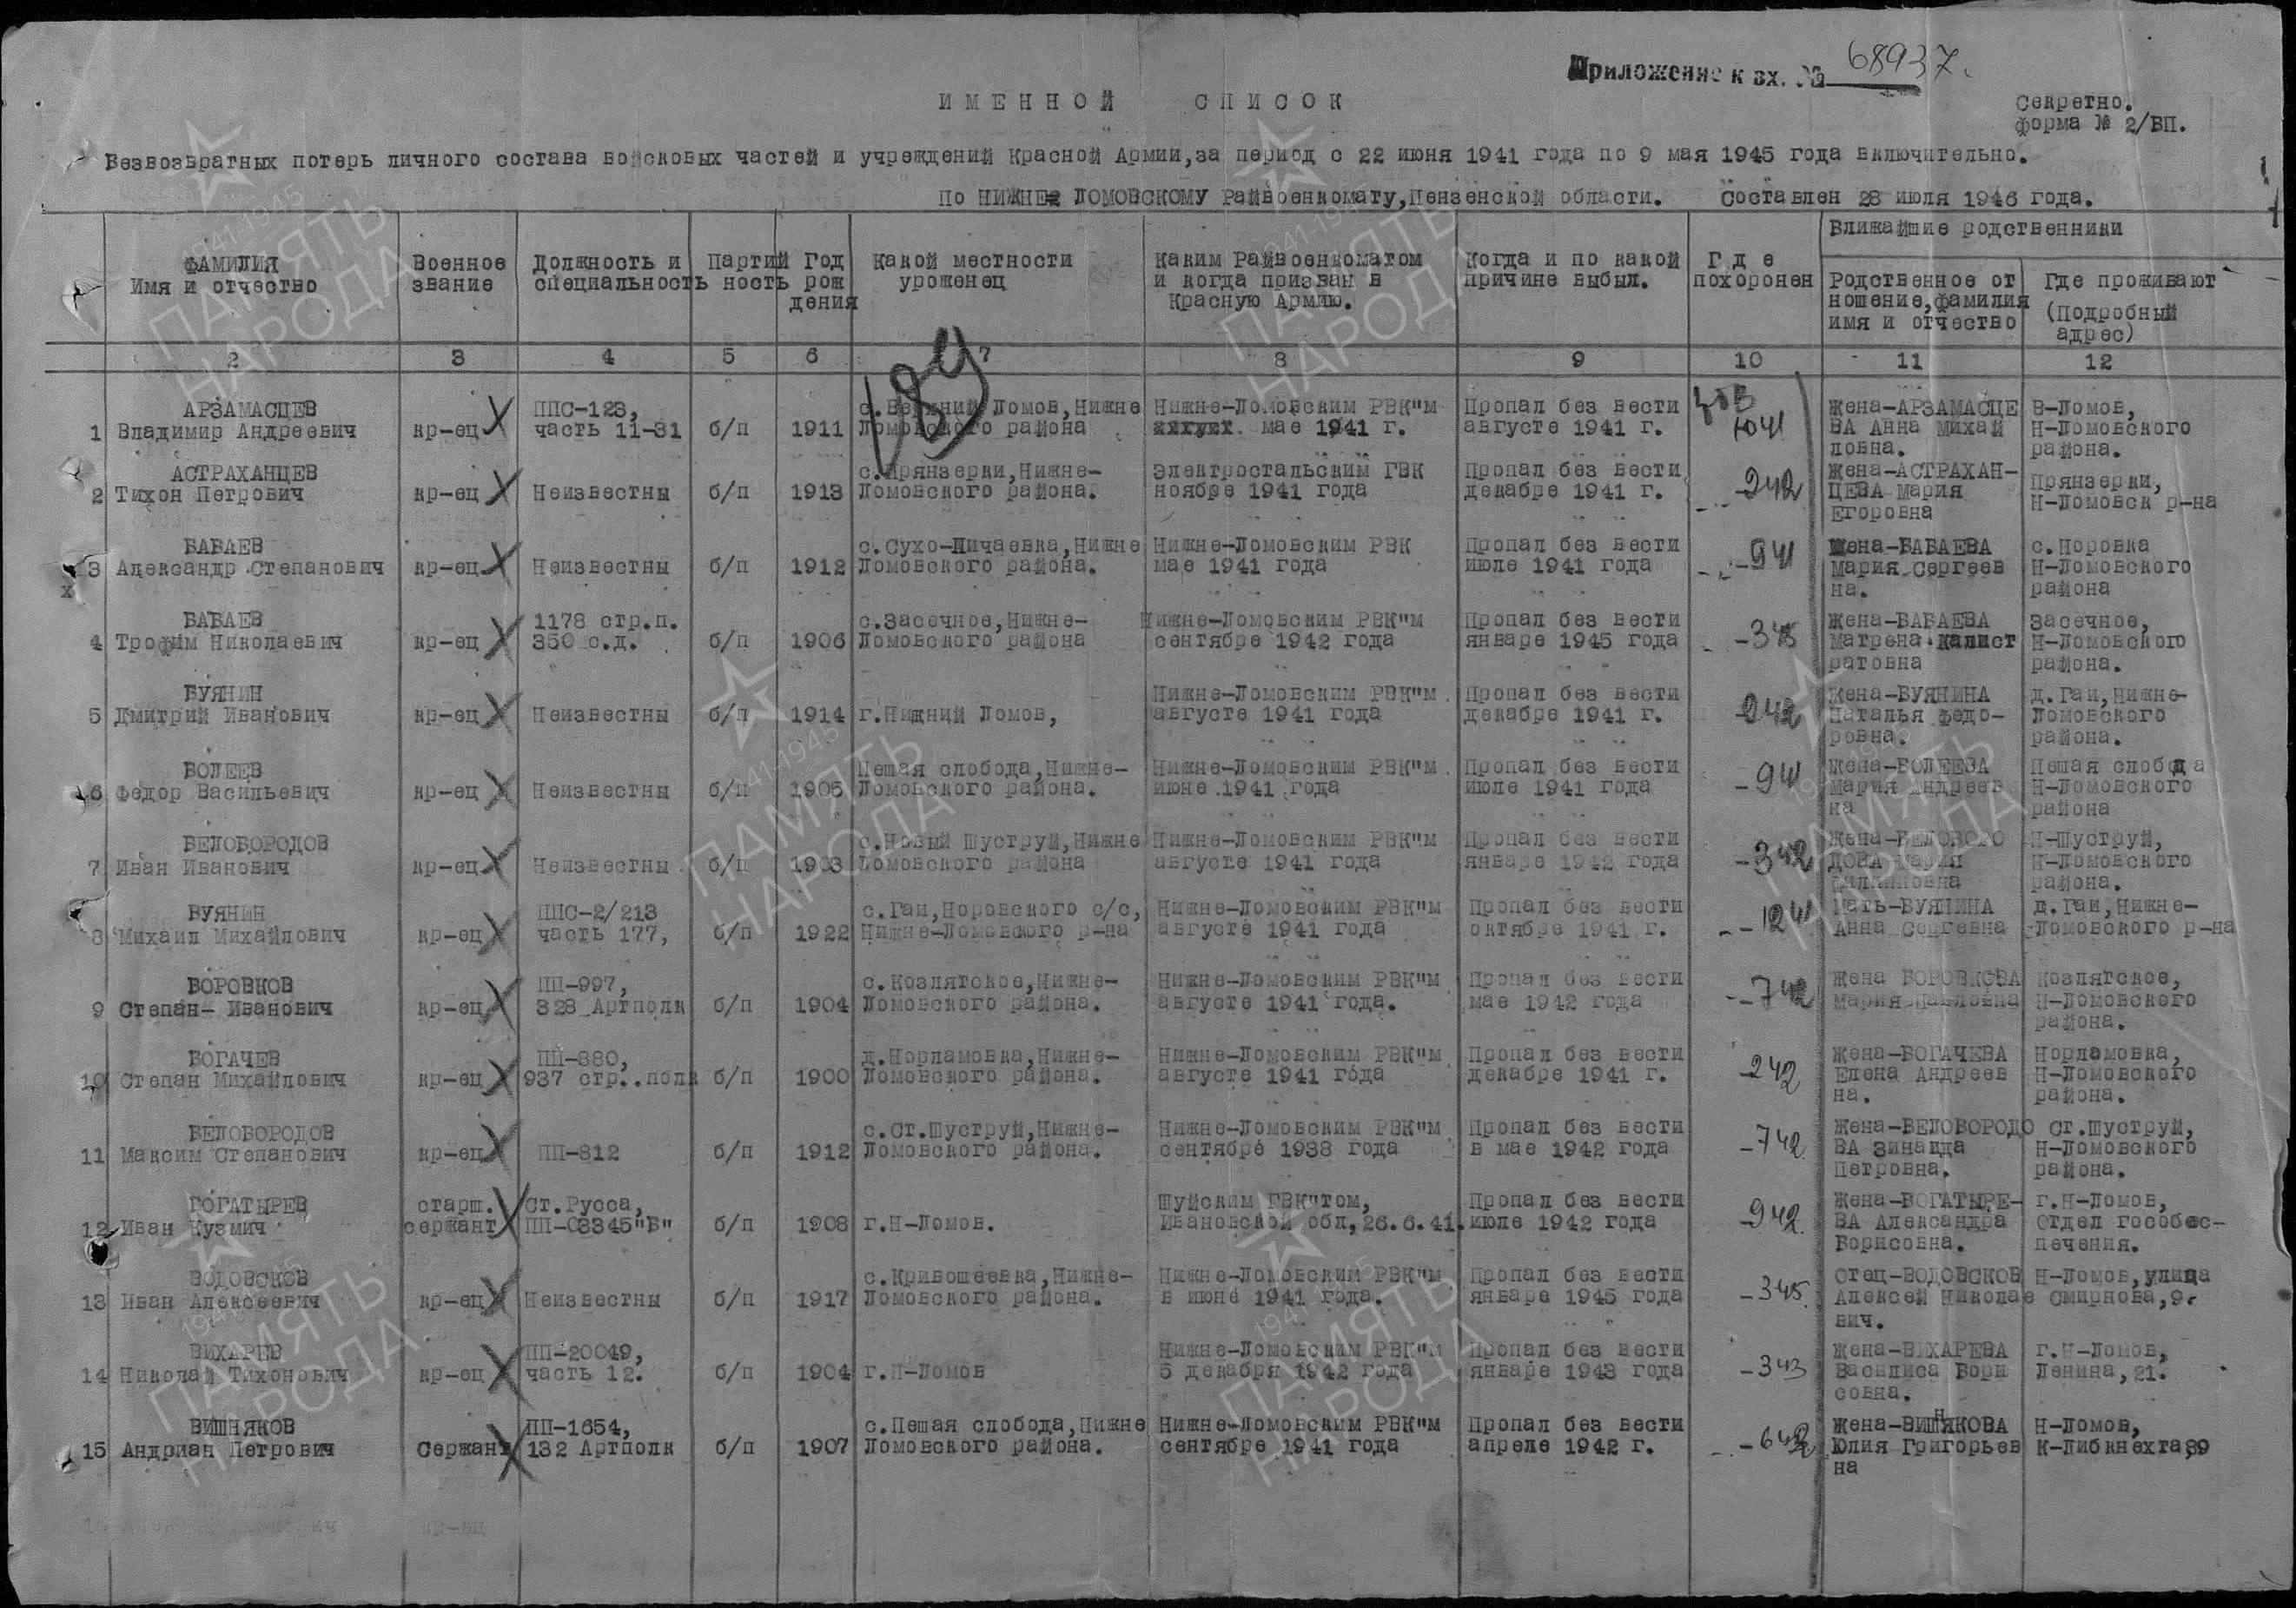 Приложение к вх. № 68937.
ИМЕННОЙ СПИСОК
Секретно.
форма № 2/БП.
Безвозвратных потерь личного состава войсковых частей и учреждений Красной Армии, за период с 22 июня 1941 года по 9 мая 1945 года включительно.
По НИЖНЕ ЛОМОВСКОМУ Райвоенкомату, Пензенской области. Составлен 28 июля 1946 года.
ФАМИЛИЯ
Имя и отчество
Военное
звание
Должность и
специальность
Партий
ность
Год
рож
дения
Какой местности
уроженец
Каким Райвоенкоматом
и когда призван в
Красную Армию.
Когда и по какой
причине выбыл.
Где
похоронен
Ближайшие родственники
Родственное от
ношение, фамилия
имя и отчество
Где проживают
(Подробный
адрес)
2 3 4 5 6 7 8 9 10 11 12
189
АРЗАМАСЦЕВ ППС-123, с. Верхний Ломов, Нижне Нижне-Ломовским РВК"м Пропал без вести Жена-АРЗАМАСЦЕ В-Ломов,
1 Владимир Андреевич кр-ец часть 11-31 б/п 1911 Ломовского района мае 1941 г. августе 1941 г. 1041 ВА Анна Михай Н-Ломовского
ловна. района.
АСТРАХАНЦЕВ с. Прянзерки, Нижне- Электростальским ГВК Пропал без вести Жена-АСТРАХАН- Прянзерки,
2 Тихон Петрович кр-ец Неизвестны б/п 1913 Ломовского района. ноябре 1941 года декабре 1941 г. -242 ЦЕВА Мария Н-Ломовск р-на
Егоровна
БАБАЕВ с. Сухо-Пичаевка, Нижне Нижне-Ломовским РВК Пропал без вести Жена-БАБАЕВА с. Норовка
3 Александр Степанович кр-ец Неизвестны б/п 1912 Ломовского района. мае 1941 года июле 1941 года -941 Мария Сергеев Н-Ломовского
х на. района
БАБАЕВ 1178 стр.п. с. Засечное, Нижне- Нижне-Ломовским РВК"м Пропал без вести Жена-БАБАЕВА Засечное,
4 Трофим Николаевич кр-ец 350 с.д. б/п 1906 Ломовского района сентябре 1942 года январе 1945 года -345 Матрена Калист Н-Ломовского
ратовна района.
БУЯНИН Нижне-Ломовским РВК"м Пропал без вести Жена-БУЯНИНА д. Гаи, Нижне-
5 Дмитрий Иванович кр-ец Неизвестны б/п 1914 г. Нижний Ломов, августе 1941 года декабре 1941 г. -242 Наталья Федо- Ломовского
ровна. района.
БОЛЕЕВ Пешая слобода, Нижне- Нижне-Ломовским РВК"м Пропал без вести Жена-БОЛЕЕВА Пешая слобода
6 Федор Васильевич кр-ец Неизвестны б/п 1905 Ломовского района. июне 1941 года июле 1941 года -941 Мария Андреев Н-Ломовского
на района
БЕЛОБОРОДОВ с. Новый Шуструй, Нижне Нижне-Ломовским РВК"м Пропал без вести Жена-БЕЛОБОРО Н-Шуструй,
7 Иван Иванович кр-ец Неизвестны б/п 1903 Ломовского района августе 1941 года январе 1942 года -342 ДОВА Мария Н-Ломовского
района.
БУЯНИН ППС-2/213 с. Гаи, Норовского с/с, Нижне-Ломовским РВК"м Пропал без вести Мать-БУЯНИНА д. Гаи, Нижне-
8 Михаил Михайлович кр-ец часть 177, б/п 1922 Нижне-Ломовского р-на августе 1941 года октябре 1941 г. -1241 Анна Сергевна Ломовского р-на
БОРОВКОВ ПП-997, с. Козлятское, Нижне- Нижне-Ломовским РВК"м Пропал без вести Жена БОРОВКОВА Козлятское,
9 Степан- Иванович кр-ец 328 Артполк б/п 1904 Ломовского района. августе 1941 года. мае 1942 года -742 Мария Павловна Н-Ломовского
района.
БОГАЧЕВ ПП-880, д. Норламовка, Нижне- Нижне-Ломовским РВК"м Пропал без вести Жена-БОГАЧЕВА Норламовка,
10 Степан Михайлович кр-ец 937 стр..полк б/п 1900 Ломовского района. августе 1941 года декабре 1941 г. -242 Елена Андреев Н-Ломовского
на. района.
БЕЛОБОРОДОВ с. Ст. Шуструй, Нижне- Нижне-Ломовским РВК"м Пропал без вести Жена-БЕЛОБОРОДО Ст. Шуструй,
11 Максим Степанович кр-ец ПП-812 б/п 1912 Ломовского района. сентябре 1938 года в мае 1942 года -742 ВА Зинаида Н-Ломовского
Петровна. района.
БОГАТЫРЕВ старш. Ст. Русса, Шуйским ГВК"том, Пропал без вести Жена-БОГАТЫРЕ- г. Н-Ломов,
12 Иван Кузмич сержант ПП-03345"Б" б/п 1908 г. Н-Ломов. Ивановской обл, 26.6.41. июле 1942 года -942 ВА Александра отдел гособес-
Борисовна. печения.
ВОДОВСКОВ с. Кривошеевка, Нижне- Нижне-Ломовским РВК"м Пропал без вести Отец-ВОДОВСКОВ Н-Ломов, улица
13 Иван Алексеевич кр-ец Неизвестны б/п 1917 Ломовского района. в июне 1941 года. январе 1945 года -345 Алексей Николае Смирнова, 9.
вич.
ВИХАРЕВ ПП-20049, Нижне-Ломовским РВК"м Пропал без вести Жена-ВИХАРЕВА г. Н-Ломов,
14 Николай Тихонович кр-ец часть 12. б/п 1904 г. Н-Ломов 5 декабря 1942 года январе 1943 года -343 Василиса Бори Ленина, 21.
совна.
ВИШНЯКОВ ПП-1654, с. Пешая слобода, Нижне Нижне-Ломовским РВК"м Пропал без вести Жена-ВИШНЯКОВА Н-Ломов,
15 Андриан Петрович Сержант 132 Артполк б/п 1907 Ломовского района. сентябре 1941 года апреле 1942 г. -642 Юлия Григорьев К-Либкнехта, 89
на
16 кр-ец
1941-1945
ПАМЯТЬ
НАРОДА